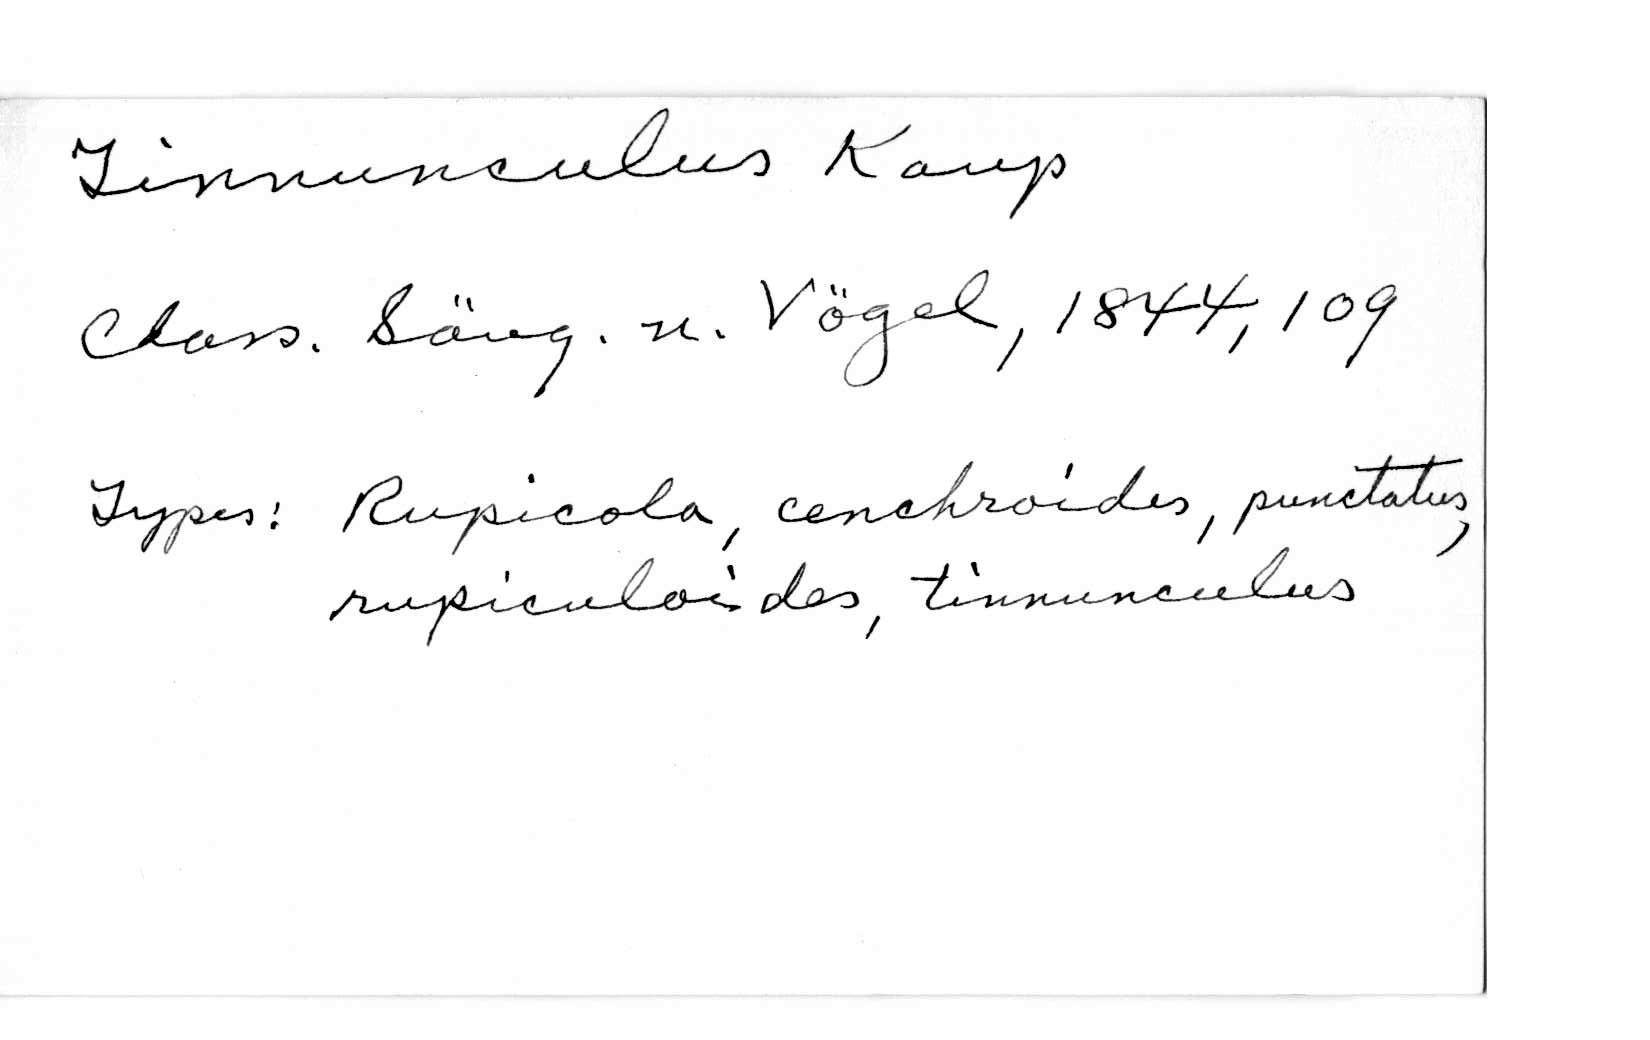 Tinnunculus Kaup
Class. Säug. u. Vögel, 1844, 109
Types: Rupicola, cenchroides, punctatus,
rupiculoides, tinnunculus